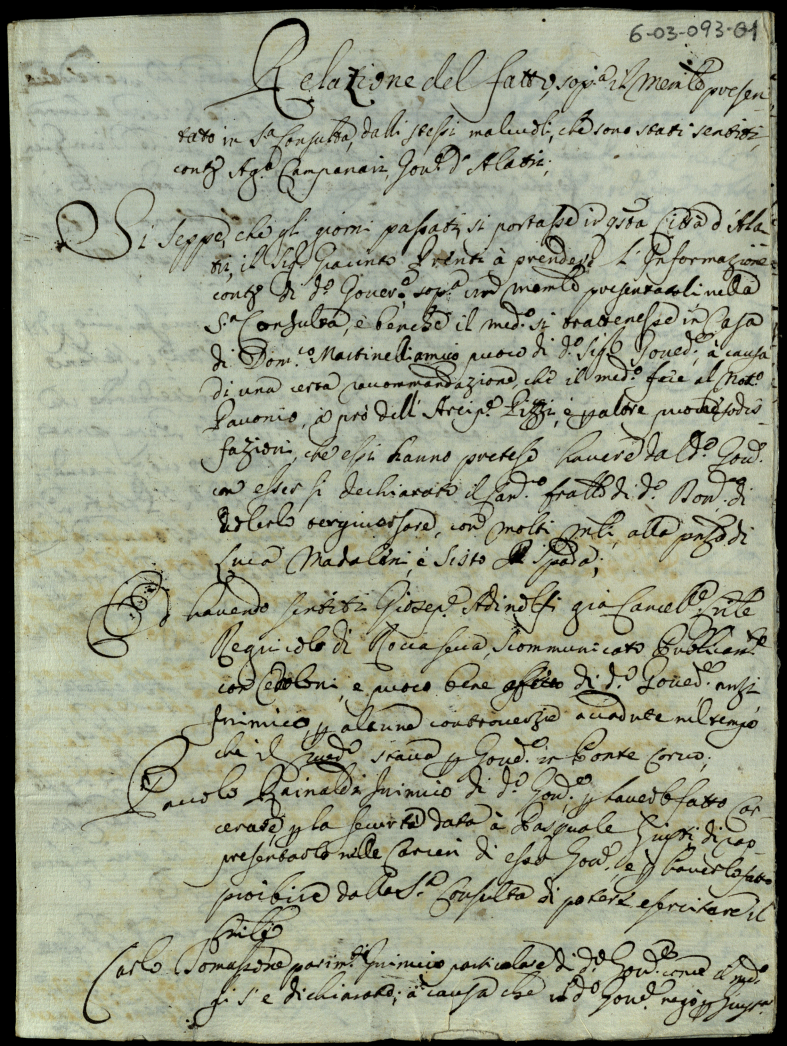 6-03-093-01
Relazione del fatto, sop.a il Mem.le presen
tato in S.a Consulta, dalli stessi malevoli, che sono stati sentiti
contro Ag.o Campanari, Gov.re d'Alatri;
Si seppe, che gli giorni passati, si portasse in q.sta Città d'Ala
tri, il Sig.r Giacinto à prendere l'Informazione
contro di d.o Gover.e sop.a un mem.le presentatoli nella
S.a Consulta, e benche il med.o si trattenesse in Casa
di Dom.co Martinelli amico puoco di d.o Sig.r Gover.e, à causa
di una certa raccommandazione, che il med.o fece al Not.o
Pavonio, à prò dell'Arcip.e Pizzi, e altre puoche sodis
fazioni, che essi hanno pretese havere dal d.o Gov.re
con essersi dechiarato il fratello di d.o Dom.co di
volerlo con molti alla pnza di
Luca Madaleni, e Sisto Spada;
Et havendo sentiti Giosep.e Adinolfi già Cancell.e
Regnicolo di Roccasecca, scommunicato Publicam.te
con Cedoloni, e puoco bene affetto di d.o Gover.e anzi
Inimico p alcune controverzie accadute nel tempo
che il med.o stava p Gover.e in Ponte Corvo;
Paulo Rainaldi Inimico di d.o Gov.e p haverlo fatto Car-
cerare p la securtà data à Pasquale di rap-
presentarlo nelle Carceri di esso Gov.e e p haverlo fatto
proibire dalla S.a Consulta di potere esercitare il
Carlo Tomassone parim.te Inimico particolare di d.o Gov.e come il med.o
si è dichiarato; à causa che il d.o Gov.e negò p